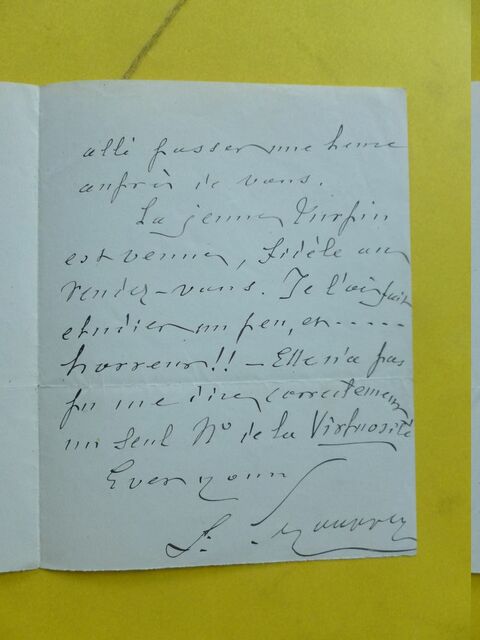 allé passer une heure
auprès de vous.
La jeune Turpin
est venue, fidèle au
rendez-vous. Je l'ai fait
étudier un peu, et -----
horreur!! - Elle n'a pas
pu me dire correctement
un seul No de la Virtuosité
Ever yours